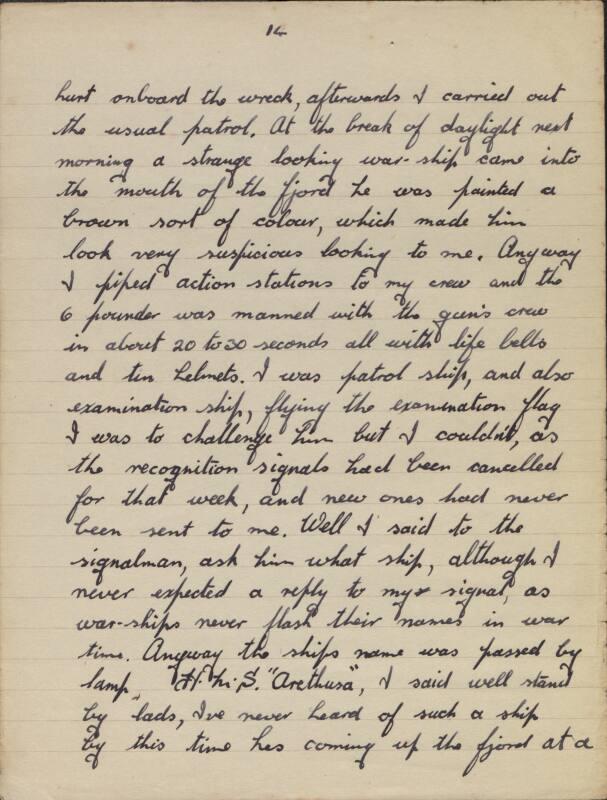 14
hurt onboard the wreck, afterwards I carried out
the usual patrol. At the break of daylight next
morning a strange looking war-ship came into
the mouth of the fjord he was painted a
brown sort of colour, which made him
look very suspicious looking to me. Anyway
I piped action stations to my crew and the
6 pounder was manned with the gun's crew
in about 20 to 30 seconds all with life belts
and tin helmets. I was patrol ship, and also
examination ship, flying the examination flag
I was to challenge him but I couldn't, as
the recognition signals had been cancelled
for that week, and new ones had never
been sent to me. Well I said to the
signalman, ask him what ship, although I
never expected a reply to my signal, as
war-ships never flash their names in war
time. Anyway the ships name was passed by
lamp, H.M.S. "Arethusa", I said well stand
by lads, I've never heard of such a ship
by this time hes coming up the fjord at a